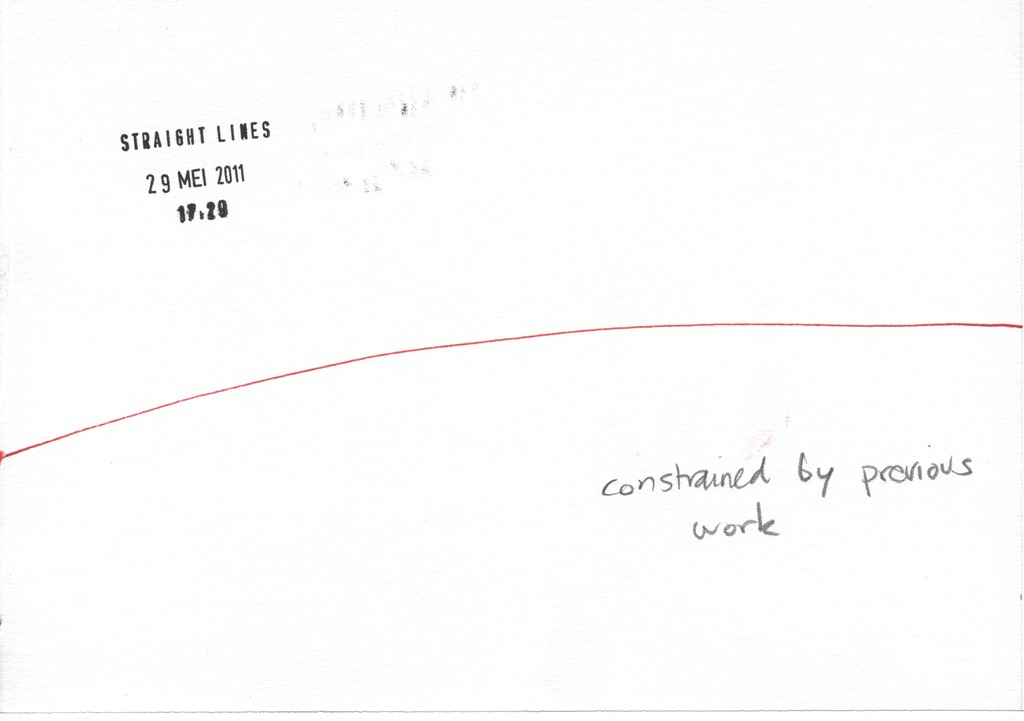 STRAIGHT LINES
29 MEI 2011
17.29
constrained by previous
work